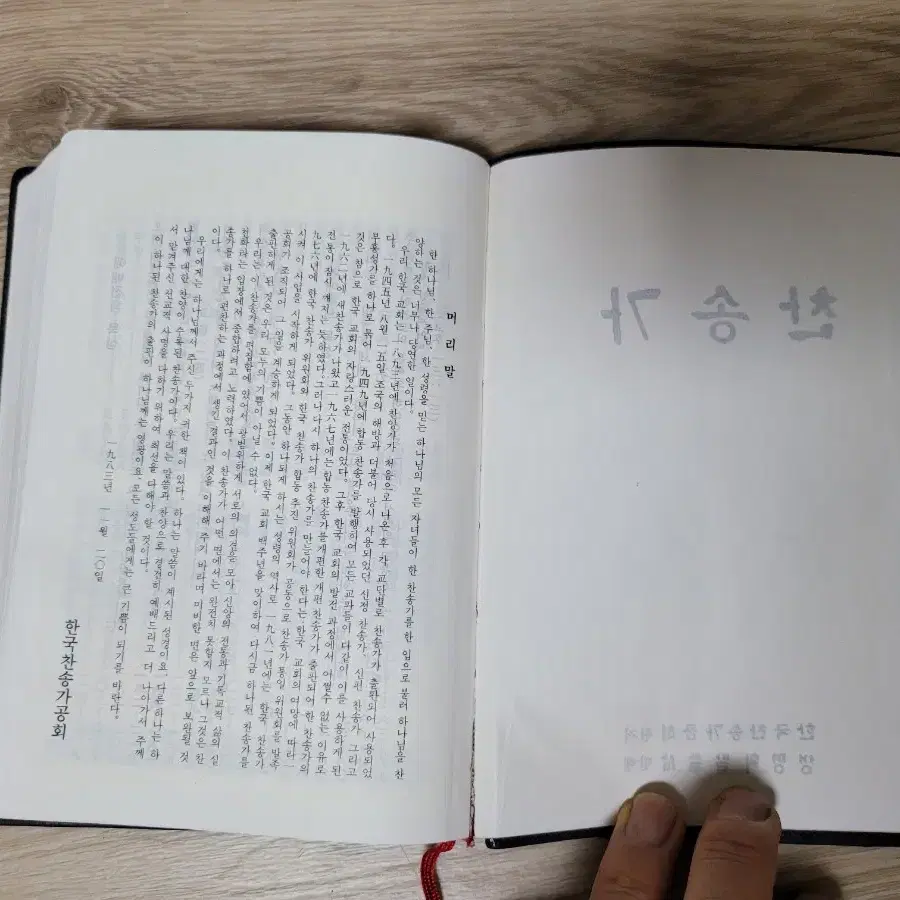 머리말
한 하나님, 한 주님, 한 성령을 믿는 하나님의 모든 자녀들이 한 찬송가를 한 입으로 불러 하나님을 찬
양하는 것은 너무나 당연한 일이다.
우리 한국 교회는 一八九三년에 찬양가가 처음으로 나온 후 각 교단별로 찬송가가 출판되어 사용되었
다. 一九四五년 八월 一五일 조국의 해방과 더불어 당시 사용되었던 신정 찬송가, 신편 찬송가 그리고
부흥성가를 하나로 묶어 一九四九년에 합동 찬송가를 발행하여 모든 교파들이 다같이 이를 사용하게 된
것은 참으로 한국 교회의 자랑스러운 전통이었다. 그후 한국 교회의 발전 과정에서 어쩔수 없는 이유로
一九六二년에 새찬송가가 나왔고 一九六七년에는 합동 찬송가를 개편한 개편 찬송가가 출판되어 한 찬송가의
전통이 잠시 깨지는 듯하였다. 그러나 다시 하나의 찬송가를 만들어야 한다는 한국 교회의 여망에 따라 一
九七六년에 한국 찬송가 위원회와 한국 찬송가 합동 추진 위원회가 공동으로 찬송가 통일 위원회를 발족
시켜 이 사업을 시작하게 되었다. 그동안 하나되게 하시는 성령의 역사로 一九八一년에는 한국 찬송가
공회가 조직되어 그 일을 계승하게 되었다. 이제 한국 교회 백주년을 맞이하여 다시금 하나된 찬송가를
출판하게 된 것은 우리 모두의 기쁨이 아닐 수 없다.
우리는 이 찬송가를 편집함에 있어서 광범위하게 서로의 의견을 모아, 신앙의 전통과 기독교적 삶의 실
천화라는 입장에서 종합하려고 노력하였다. 이 찬송가가 어떤 면에서는 완전치 못할지 모르나 그것은 찬
송가를 하나로 편찬하는 과정에서 생긴 결과인 것을 이해해 주기 바라며 미비한 면은 앞으로 보완될 것
이다.
우리에게는 하나님께서 주신 두가지 귀한 책이 있다. 하나는 말씀이 계시된 성경이요, 다른 하나는 하
나님께 대한 찬양이 수록된 찬송가이다. 우리는 말씀과 찬양으로 경건히 예배드리고 더 나아가서 주께
서 맡겨주신 선교적 사명을 다하기 위하여 최선을 다해야 할 것이다.
이 하나된 찬송가의 출판이 하나님께는 영광이요 모든 성도들에게는 큰 기쁨이 되기를 바란다.
一九八三년 一一월 二〇일
한국찬송가공회
찬송가
한국찬송가공회
생명의말씀사